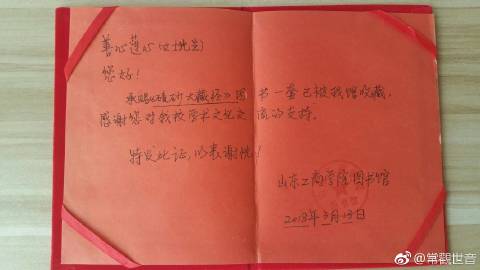 善心莲心（沈兆）
您好！
承赐《碛砂大藏经》图书一套已被我馆收藏，
感谢您对我校学术文化交流的支持。
特发此证，以表谢忱！
山东工商学院图书馆
2018年3月13日
@常觀世音